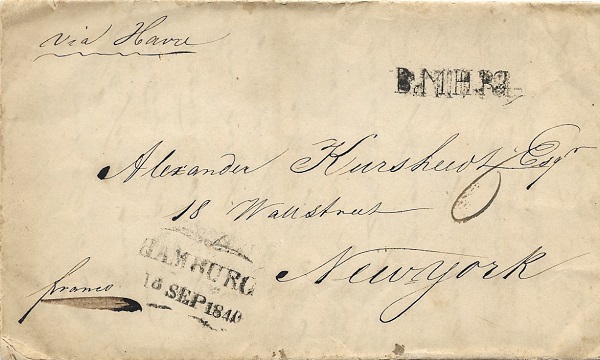 via Havre
Alexander Kursheedt Esqr
18 Wallstreet
Newyork
franco
HAMBURG
18 SEP 1840